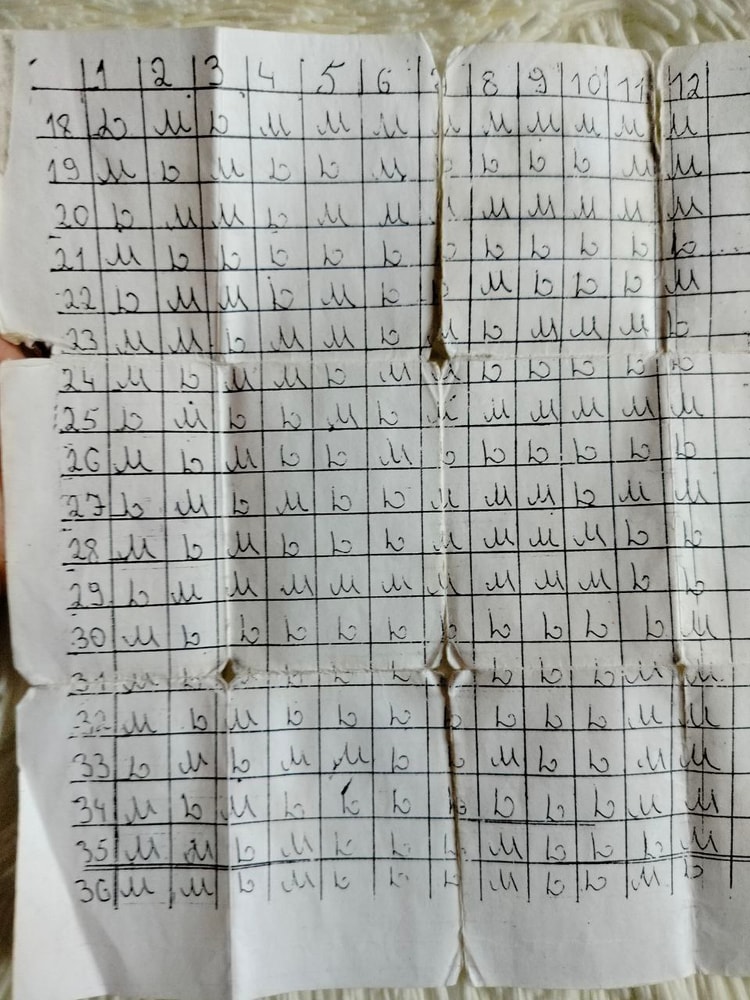 1 2 3 4 5 6 8 9 10 11 12
18 Д М Д М М М М М М М М М
19 М Д М Д Д М Д Д Д Д М М
20 Д М М Д М М М М М М М М
21 М Д Д Д Д Д Д Д Д Д Д Д
22 Д М М Д М Д Д М Д Д Д М
23 М М Д М М Д М Д М М М Д
24 М Д М М Д М М Д Д Д Д Д
25 Д М Д Д М Д М М М М М М
26 М Д М Д Д М Д Д Д Д Д Д
27 Д М Д М Д Д М М М Д М М
28 М Д М Д Д Д М М М М Д Д
29 Д М М М М М М М М М Д Д
30 М Д Д Д Д Д Д Д Д Д Д М
31 М Д М Д Д Д Д Д Д М М
32 М Д М Д Д Д Д Д Д Д М М
33 Д М Д М М Д Д М Д Д М М
34 М Д М Д Д Д Д Д Д Д М М
35 М М Д М Д Д Д М Д Д Д М
36 М М Д М Д Д Д М Д Д М Д